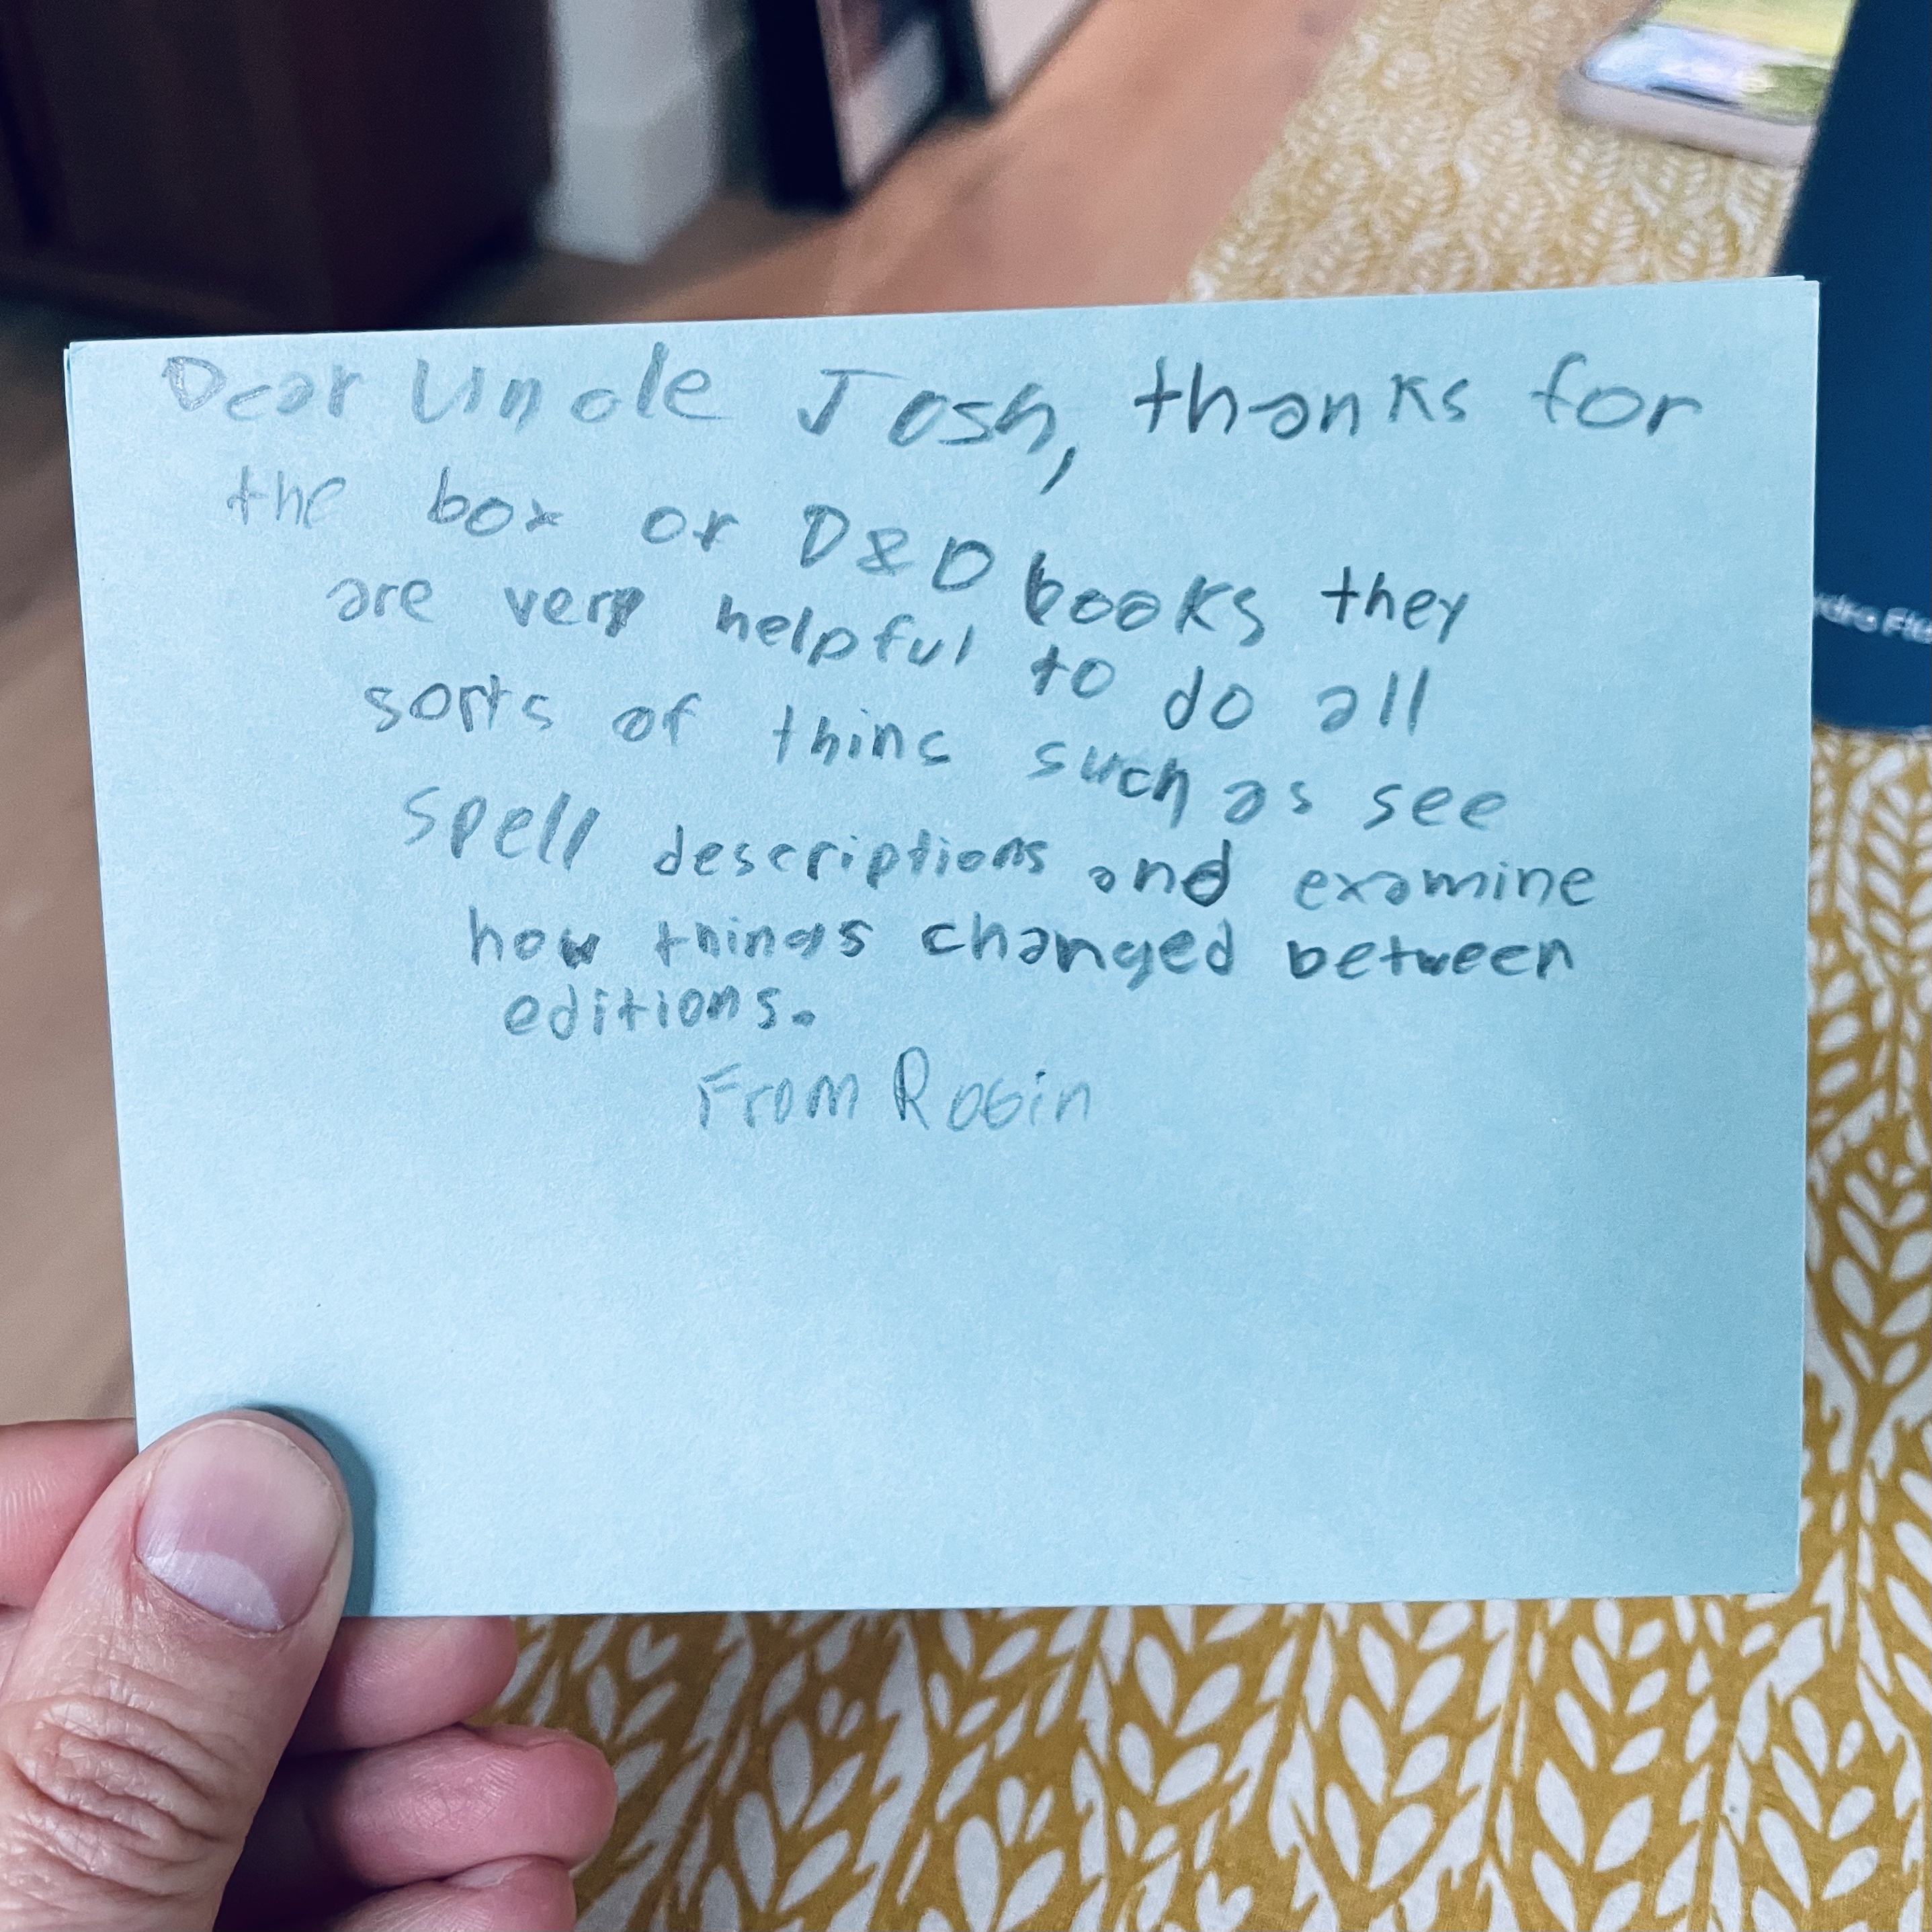 Dear Uncle Josh, thanks for
the box or D&D books they
are very helpful to do all
sorts of thinc such as see
spell descriptions and examine
how things changed between
editions.
From Robin